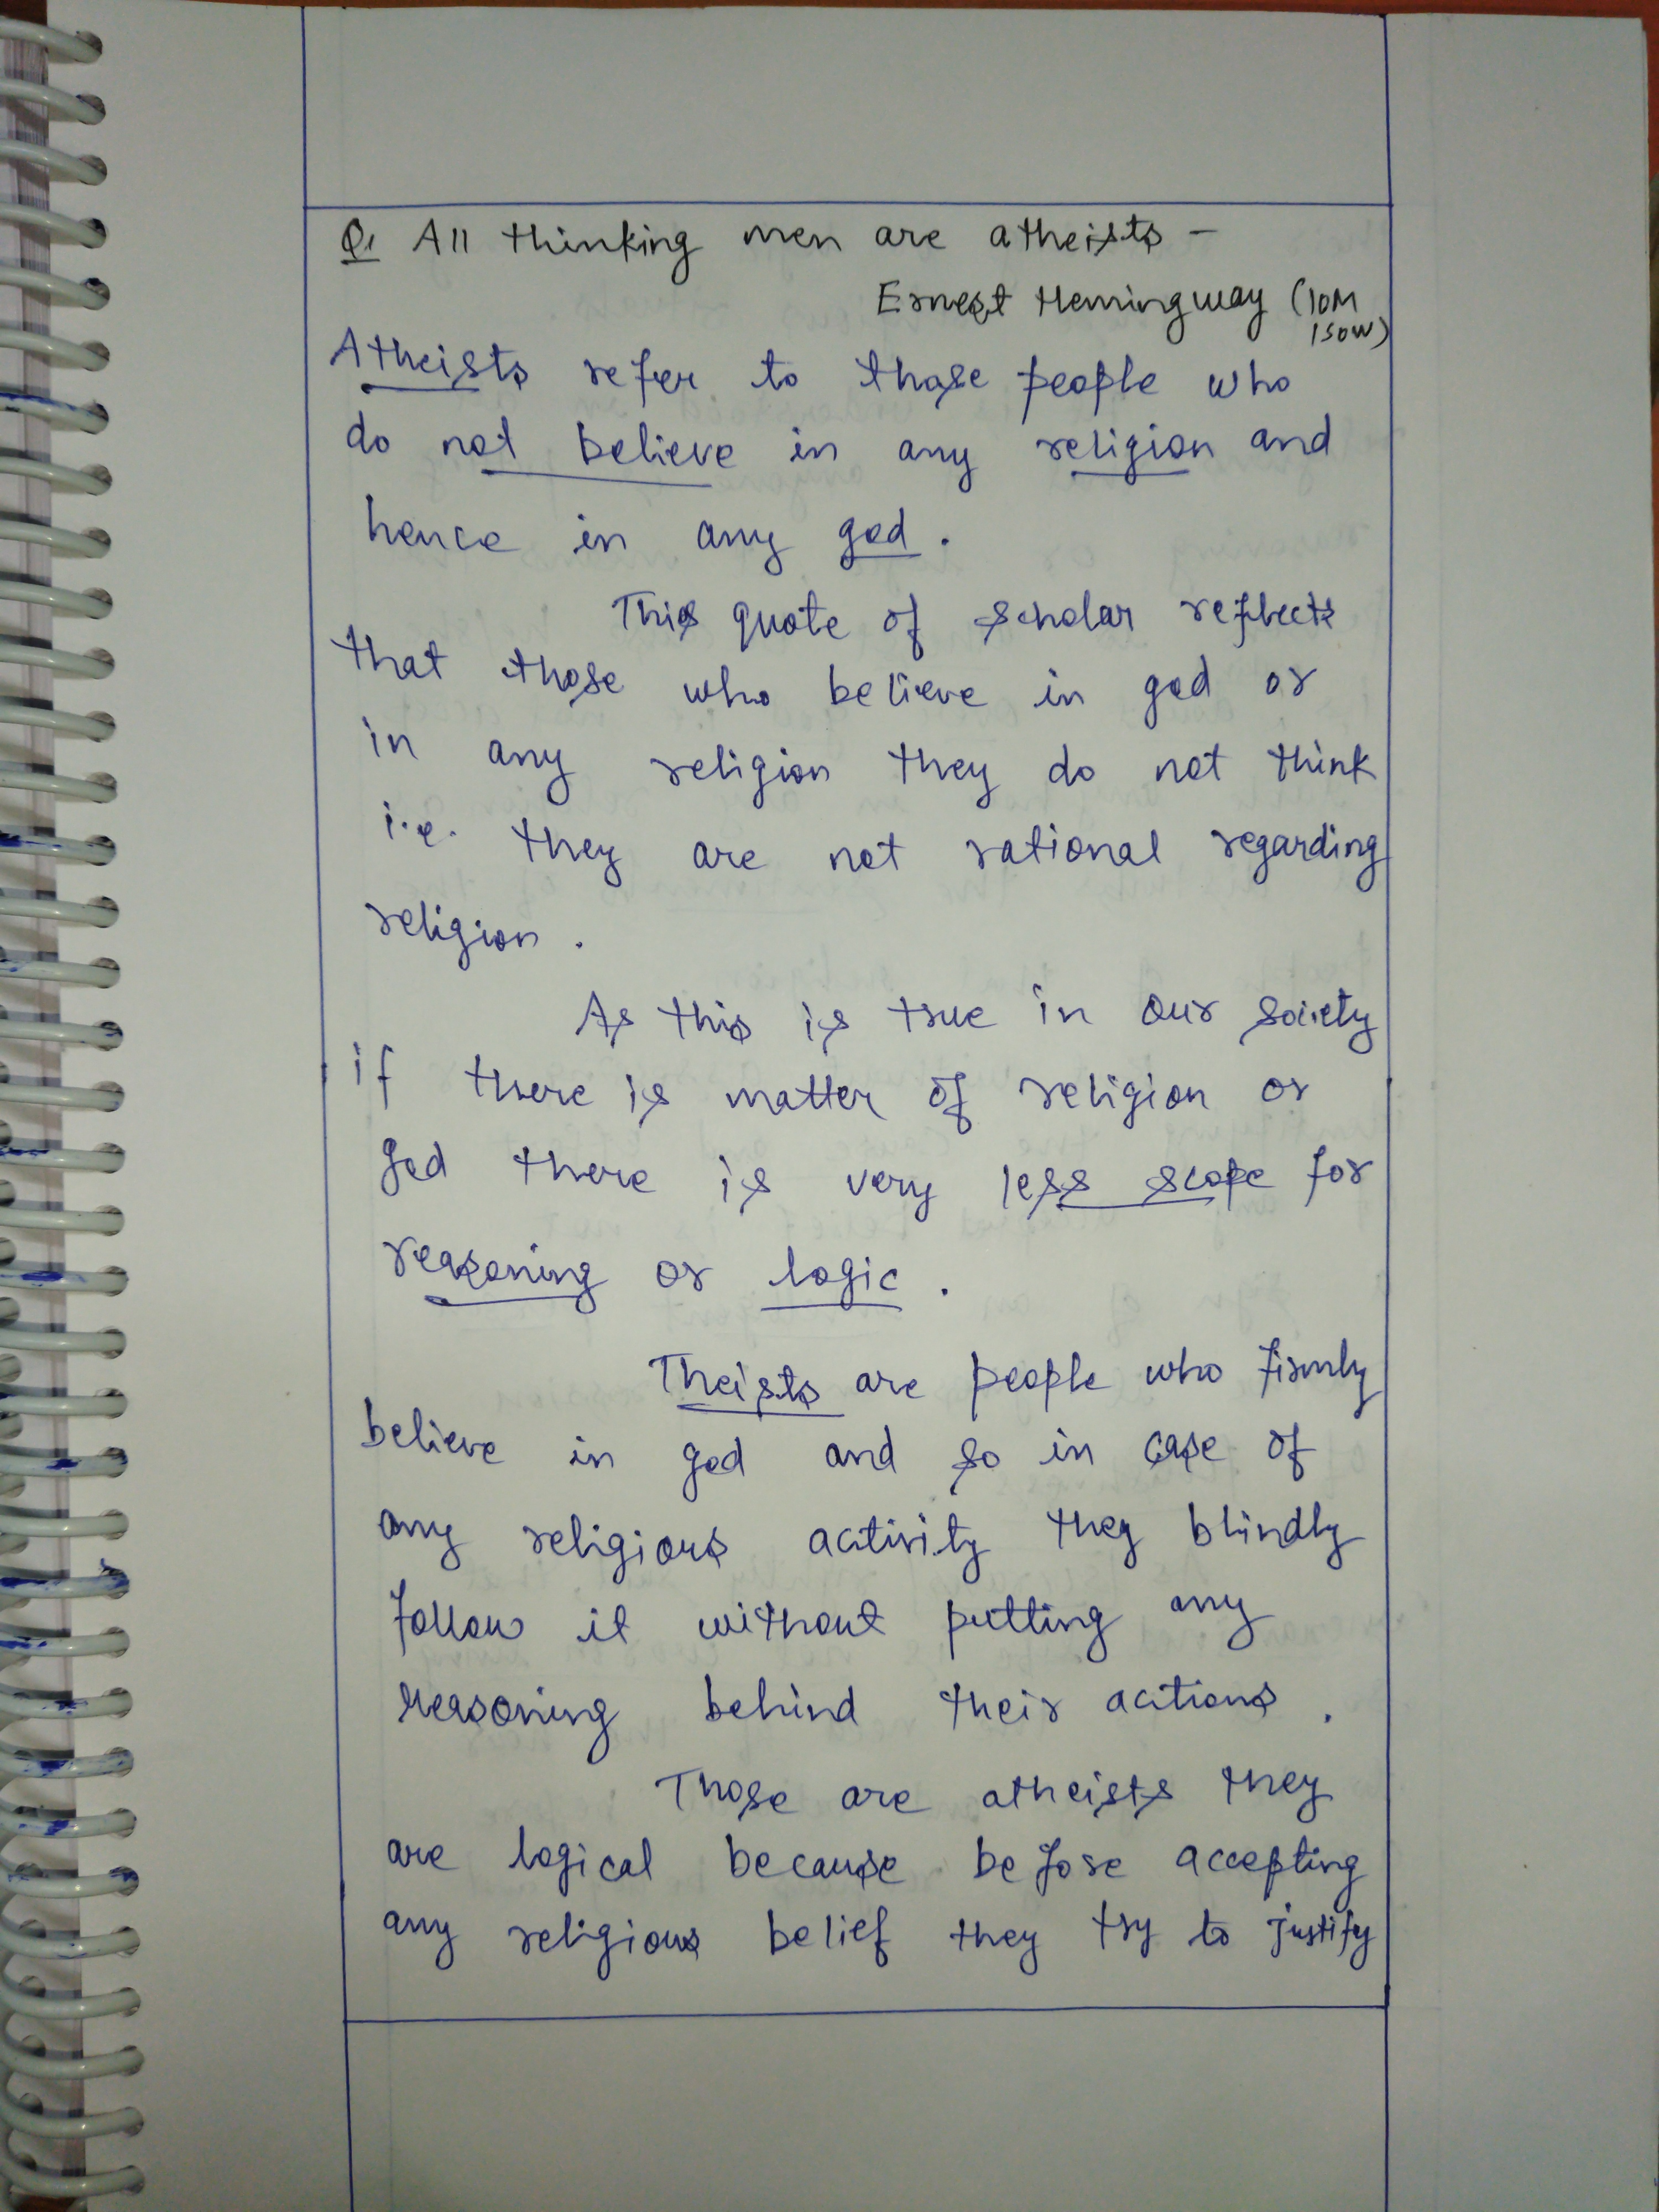 Q. All thinking men are atheists -
Ernest Hemingway (10M
150W)
Atheists refer to those people who
do not believe in any religion and
hence in any god.
This quote of scholar reflects
that those who believe in god or
in any religion they do not think
i.e. they are not rational regarding
religion.
As this is true in our society
if there is matter of religion or
god there is very less scope for
reasoning or logic.
Theists are people who firmly
believe in god and so in case of
any religious activity they blindly
follow it without putting any
reasoning behind their actions.
Those are atheists they
are logical because before accepting
any religious belief they try to justify